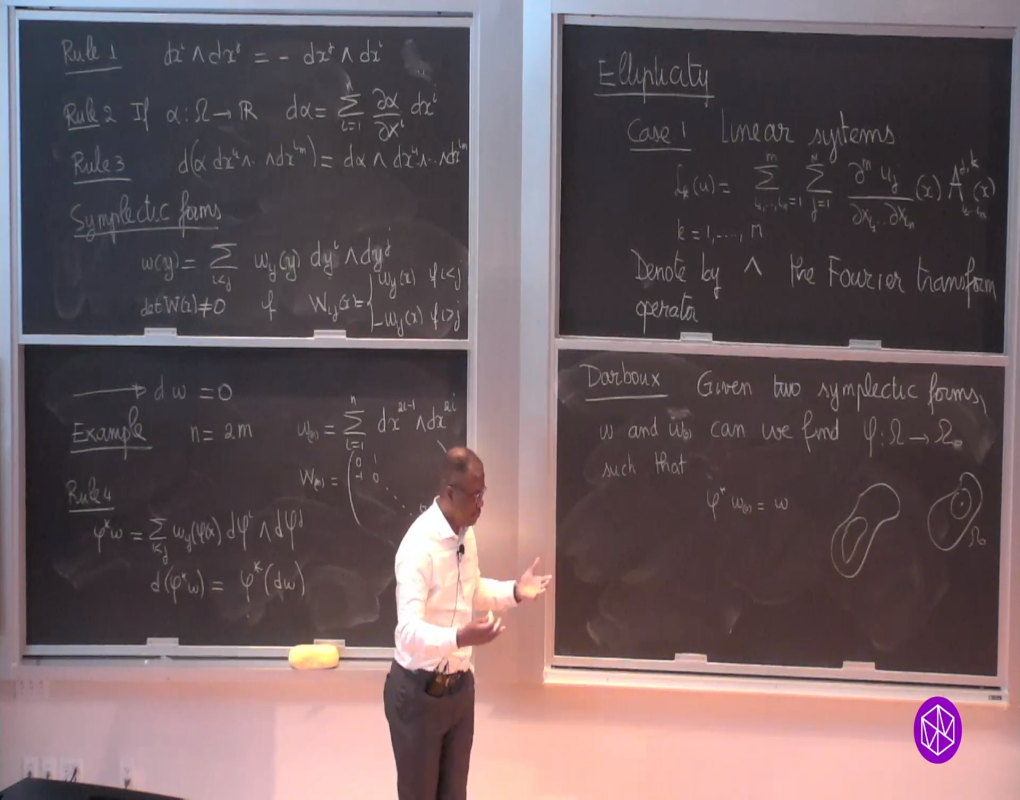 Rule 1 dxⁱ ∧ dxʲ = - dxʲ ∧ dxⁱ
Rule 2 If α : Ω → ℝ dα = ∑ᵢ₌₁ⁿ ∂α/∂xⁱ dxⁱ
Rule 3 d(α dx^{i₁} ∧ .. ∧ dx^{i_m}) = dα ∧ dx^{i₁} ∧ .. ∧ dx^{i_m}
Symplectic forms
w(y) = ∑_{i<j} w_{ij}(y) dyⁱ ∧ dyʲ
det W(x) ≠ 0 if W_{ij}(x) = { w_{ij}(x) if i<j
-w_{ij}(x) if i>j
→ dw = 0
Example n = 2m w₍ₘ₎ = ∑ᵢ₌₁ⁿ dx^{2i-1} ∧ dx^{2i}
W₍ₘ₎ = ( 0 1
-1 0
Rule 4
φ*w = ∑_{i<j} w_{ij}(φ(x)) dφⁱ ∧ dφʲ
d(φ*w) = φ*(dw)
Ellipticity
Case 1 Linear systems
L_k(u) = ∑_{i₁,..,i_m=1}^{m} ∑_{j=1}^{N} ∂^m u_j / ∂x_{i₁}..∂x_{i_m} (x) A^{j,k}_{i₁..i_m}(x)
k = 1, ..., n
Denote by ∧ the Fourier transform
operator
Darboux Given two symplectic forms,
w and w₍ₘ₎ can we find φ : Ω → Ω₀
such that
φ* w₍ₘ₎ = w
Ω₀